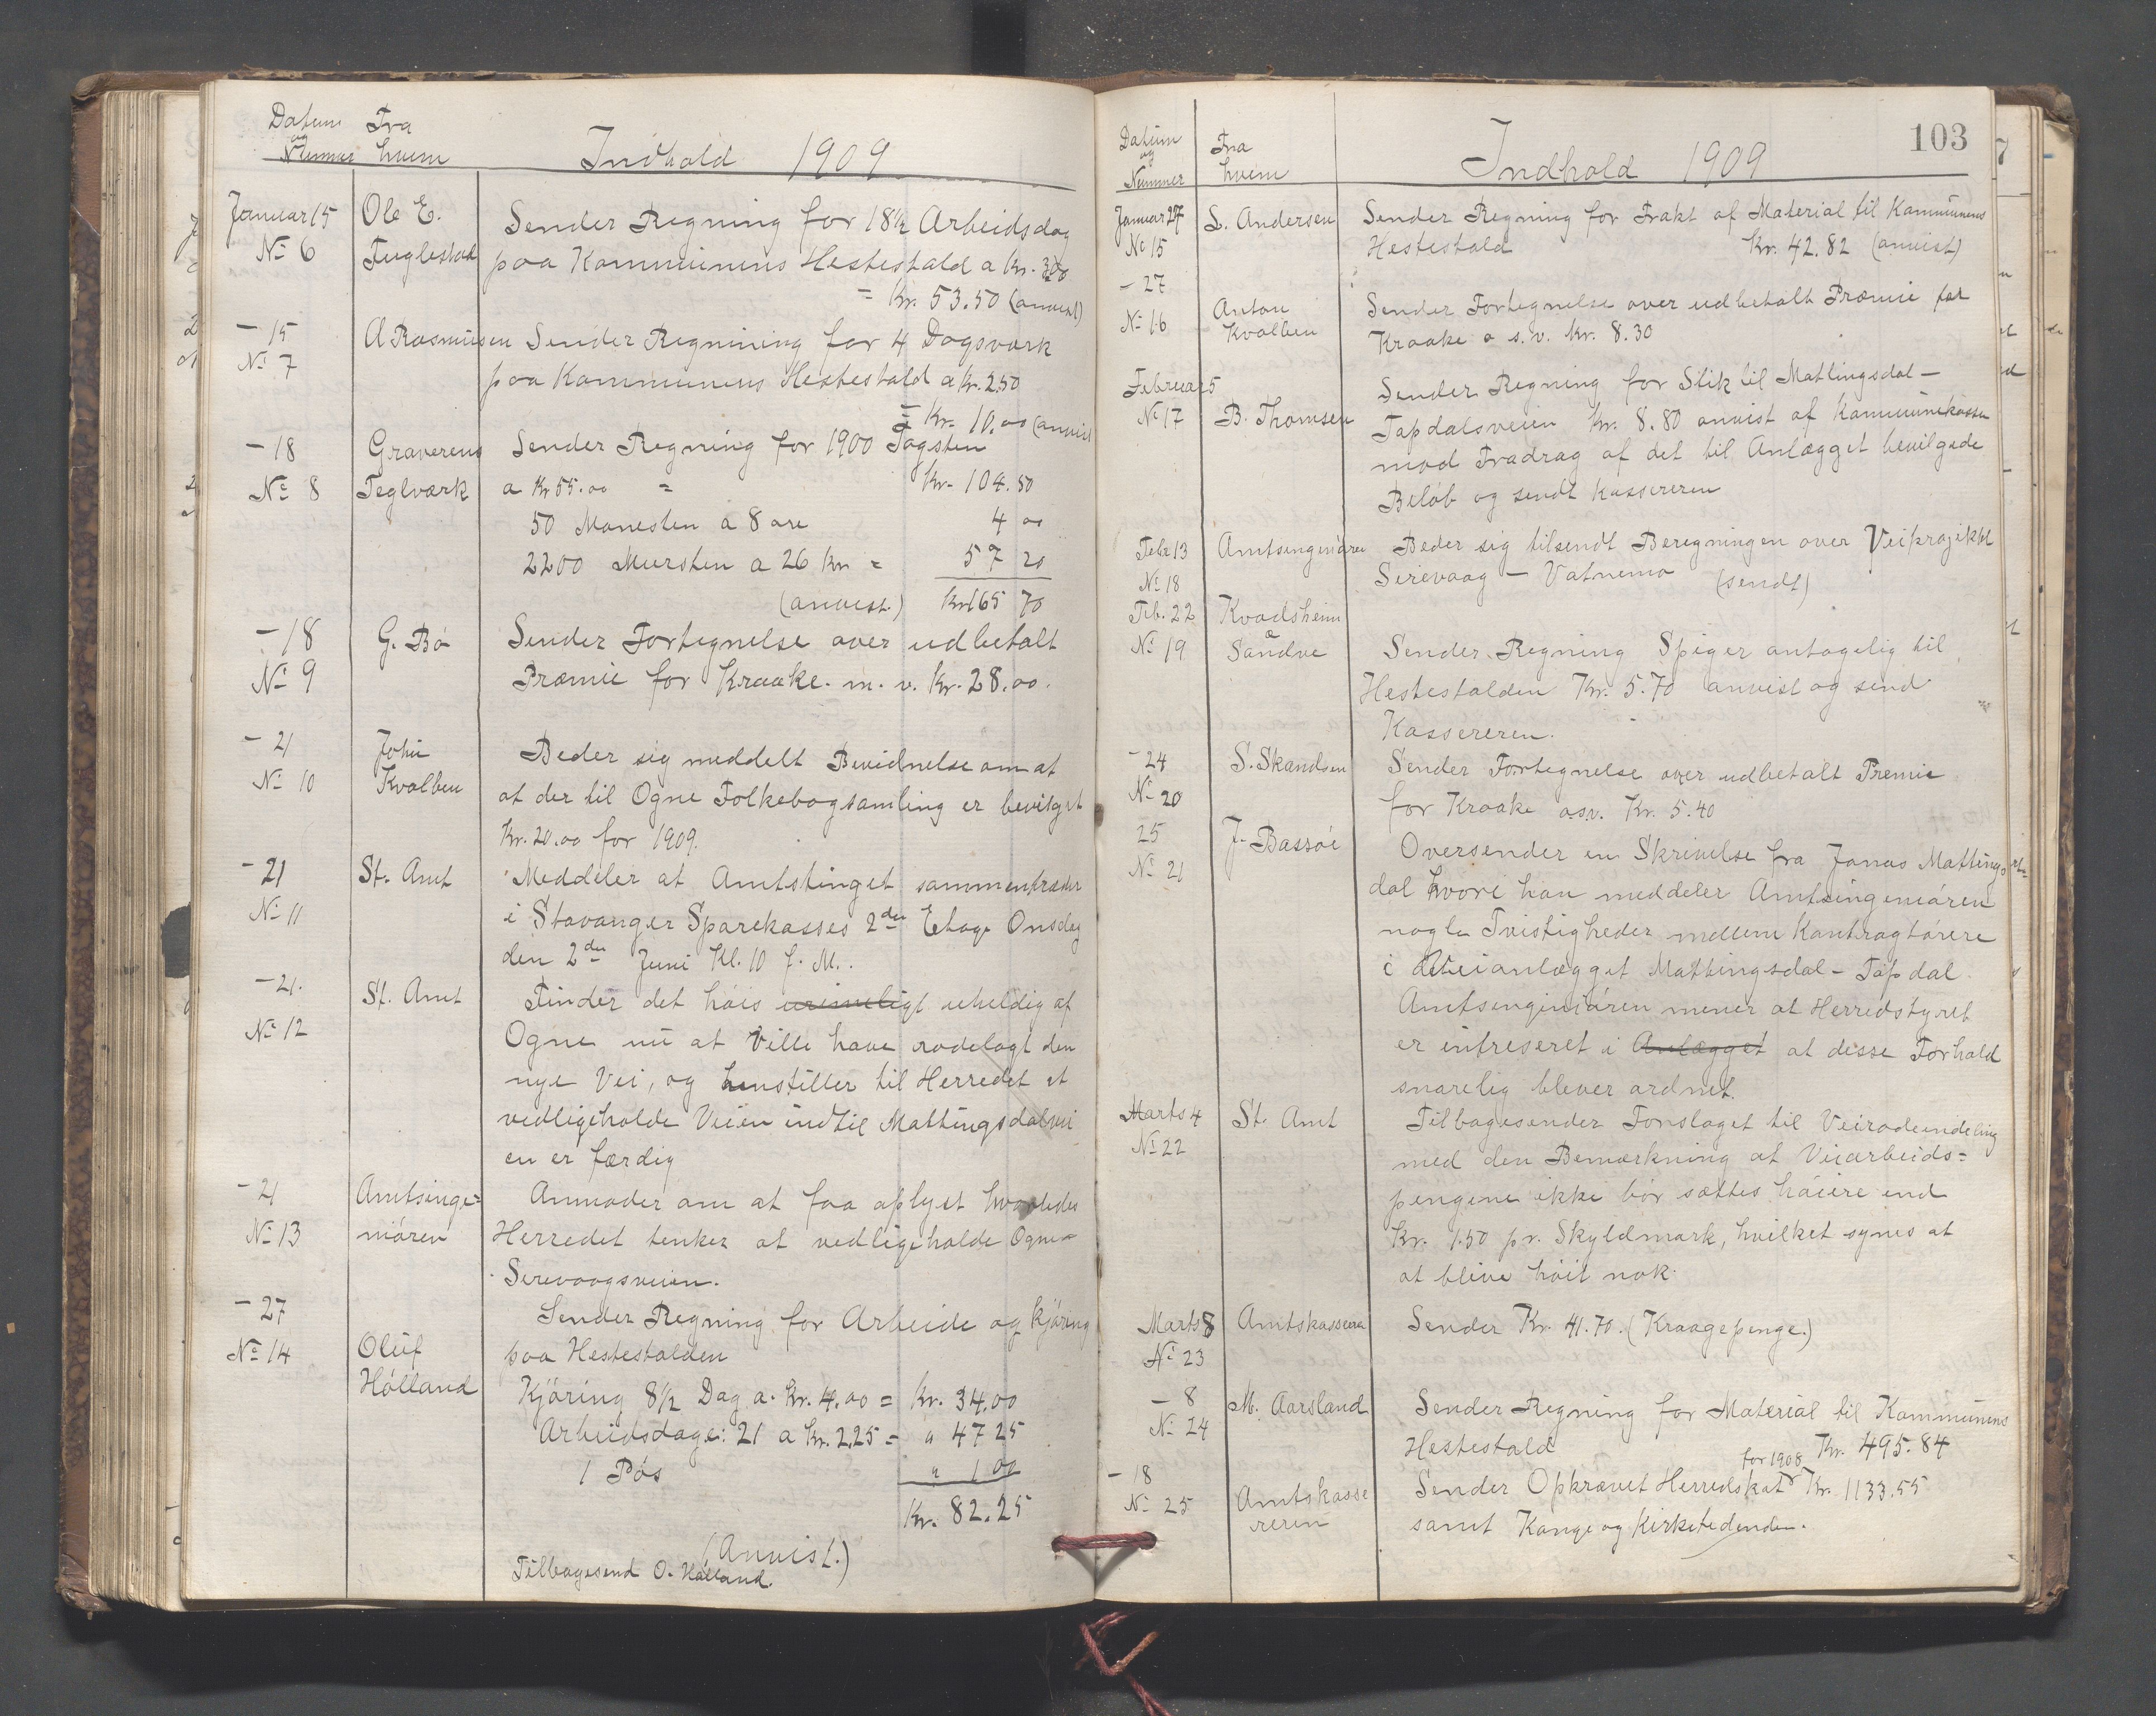 Datum Fra
og
Nummer hvem
Indhold 1909
Januar 15 Ole E. Sender Regning for 18½ Arbeidsdag
No 6 Fuglestad paa Kommunens Hestestald a Kr. 3,00
= Kr. 53.50 (anvist)
- 15 A Rasmusen Sender Regnining for 4 Dagsværk
No 7 paa Kommunens Hestestald a Kr. 2.50
= Kr. 10.00 (anvist
- 18 Graverens Sender Regning for 1900 Tagsten
No 8 Teglværk a Kr 55.00 = Kr. 104.50
50 Monesten a 8 øre 4 00
2200 Mursten a 26 Kr = 57 20
(anvist.) Kr 165 70
- 18 G. Bø Sender Fortegnelse over udbetalt
No 9 Præmie for Kraake m. v. Kr. 28.00.
- 21 John Beder sig meddelt Bevidnelse om at
No 10 Kvalben at der til Ogne Folkebogsamling er bevilget
Kr. 20.00 for 1909.
- 21 St. Amt Meddeler at Amtstinget sammentræder
No 11 i Stavanger Sparekasses 2den Etage Onsdag
den 2den Juni Kl. 10 f. M..
- 21. St. Amt Finder det høis urimeligt uheldig af
No 12 Ogne nu at Ville have rodelagt den
nye Vei, og henstiller til Herredet at
vedligeholde Veien indtil Mattingsdalvei
en er færdig
- 21 Amtsinge= Anmoder om at faa oplyst hvorledes
No 13 niøren Herredet tenker at vedligeholde Ogne-
Serevaagsveien.
- 27 Sender Regning for Arbeide og kjøring
No 14 Oluf paa Hestestalden
Hølland Kjøring 8½ Dag a. Kr. 4.00 = Kr. 34.00
Arbeidsdage: 21 a Kr. 2.25 = " 47 25
1 Pøs " 1 00
Kr. 82.25
(Anvist.)
Tilbagesend O. Hølland.
103
Datum Fra
og
Nummer hvem
Indhold 1909
Januar 27 L. Andersen Sender Regning for Frakt af Material til Kommunens
No 15 Hestestald Kr. 42.82 (anvist)
- 27 Anton Sender Fortegnelse over udbetalt Præmie for
No 16 Kvalben Kraake o s.v. Kr. 8.30
Februar 5 Sender Regning for Stik til Mattingsdal-
No 17 B. Thomsen Tapdalsveien Kr. 8.80 anvist af Kommunekassen
mod Fradrag af det til Anlægget bevilgede
Beløb og sendt kassereren
Febr 13 Amtsingeniøren Beder sig tilsendt Beregningen over Veiprojektet
No 18 Sirevaag - Vatnemo (sendt)
Feb. 22 Kvadsheim
No 19 & Sandve Sender Regning Spiger antagelig til
Hestestalden Kr. 5.70 anvist og send
Kassereren.
- 24 S. Skandsen Sender Fortegnelse over udbetalt Premie
No 20 for Kraake osv. Kr. 5.40
25 J. Bassøe Oversender en Skrivelse fra Jonas Mattings
No 21 dal hvori han meddeler Amtsingeniøren
nogle Tvistigheder mellem Kontragtørere
i Veianlægget Mattingsdal - Tapdal
Amtsingeniøren mener at Herredstyret
er intreseret i Anlægget at disse Forhold
snarelig blever ordnet.
Marts 4 St. Amt Tilbagesender Forslaget til Veirodeindeling
No 22 med den Bemærkning at Veiarbeids=
pengene ikke bør sættes høiere end
Kr. 1.50 pr. Skyldmark, hvilket synes at
at blive høit nok.
Marts 8 Amtskasserer Sender Kr. 41.70. (Kraagepenge.)
No 23
- 8 M. Aarsland Sender Regning for Material til Kommunens
No 24 Hestestald Kr. 495.84
- 18 for 1908
No 25 Amtskasse Sender Opkrævet Herredskat Kr. 1133.55
reren samt Konge og Kirketiendender.